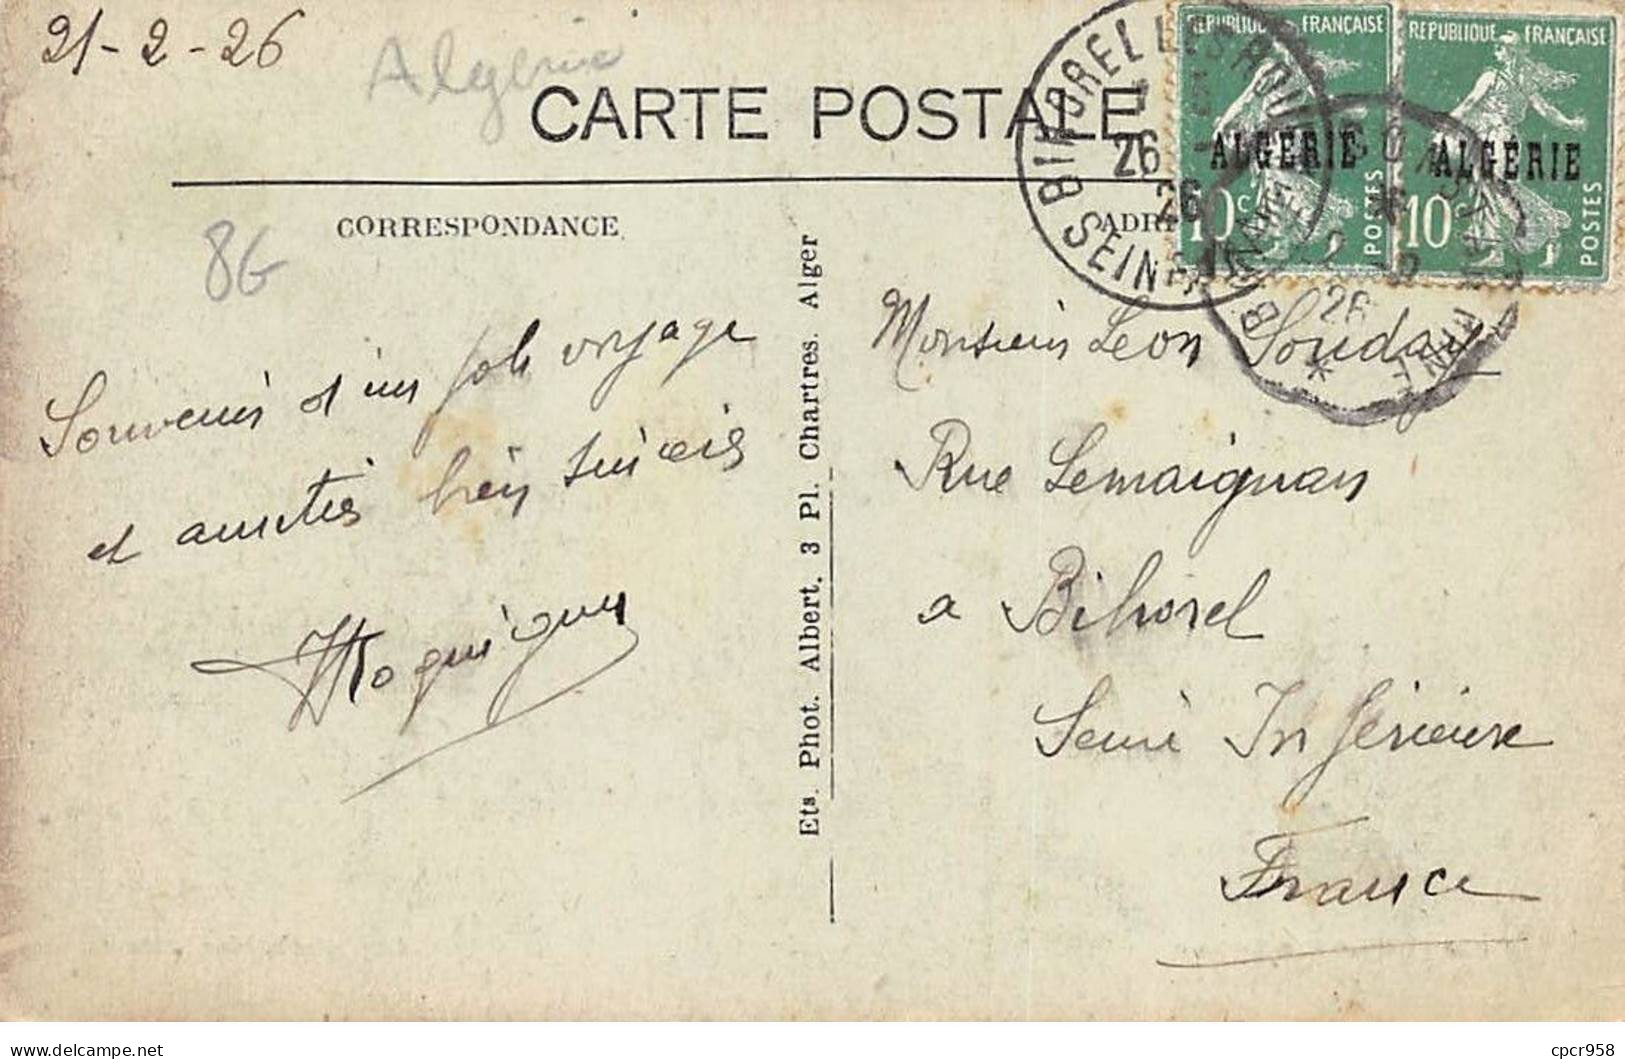 21-2-26
Algérie
CARTE POSTALE
REPUBLIQUE FRANÇAISE
ALGÉRIE
10c
POSTES
REPUBLIQUE FRANÇAISE
ALGÉRIE
10c
POSTES
BIHOREL LES ROUEN
26
26
SEINE
26
CORRESPONDANCE
8G
Souvenir d'un joli voyage
et amitiés bien sincères
Ets. Phot. Albert, 3 Pl. Chartres. Alger
Monsieur Leon Souday
Rue Lemaignan
a Bihorel
Seine Inférieure
France
delcampe.net
cpcr958